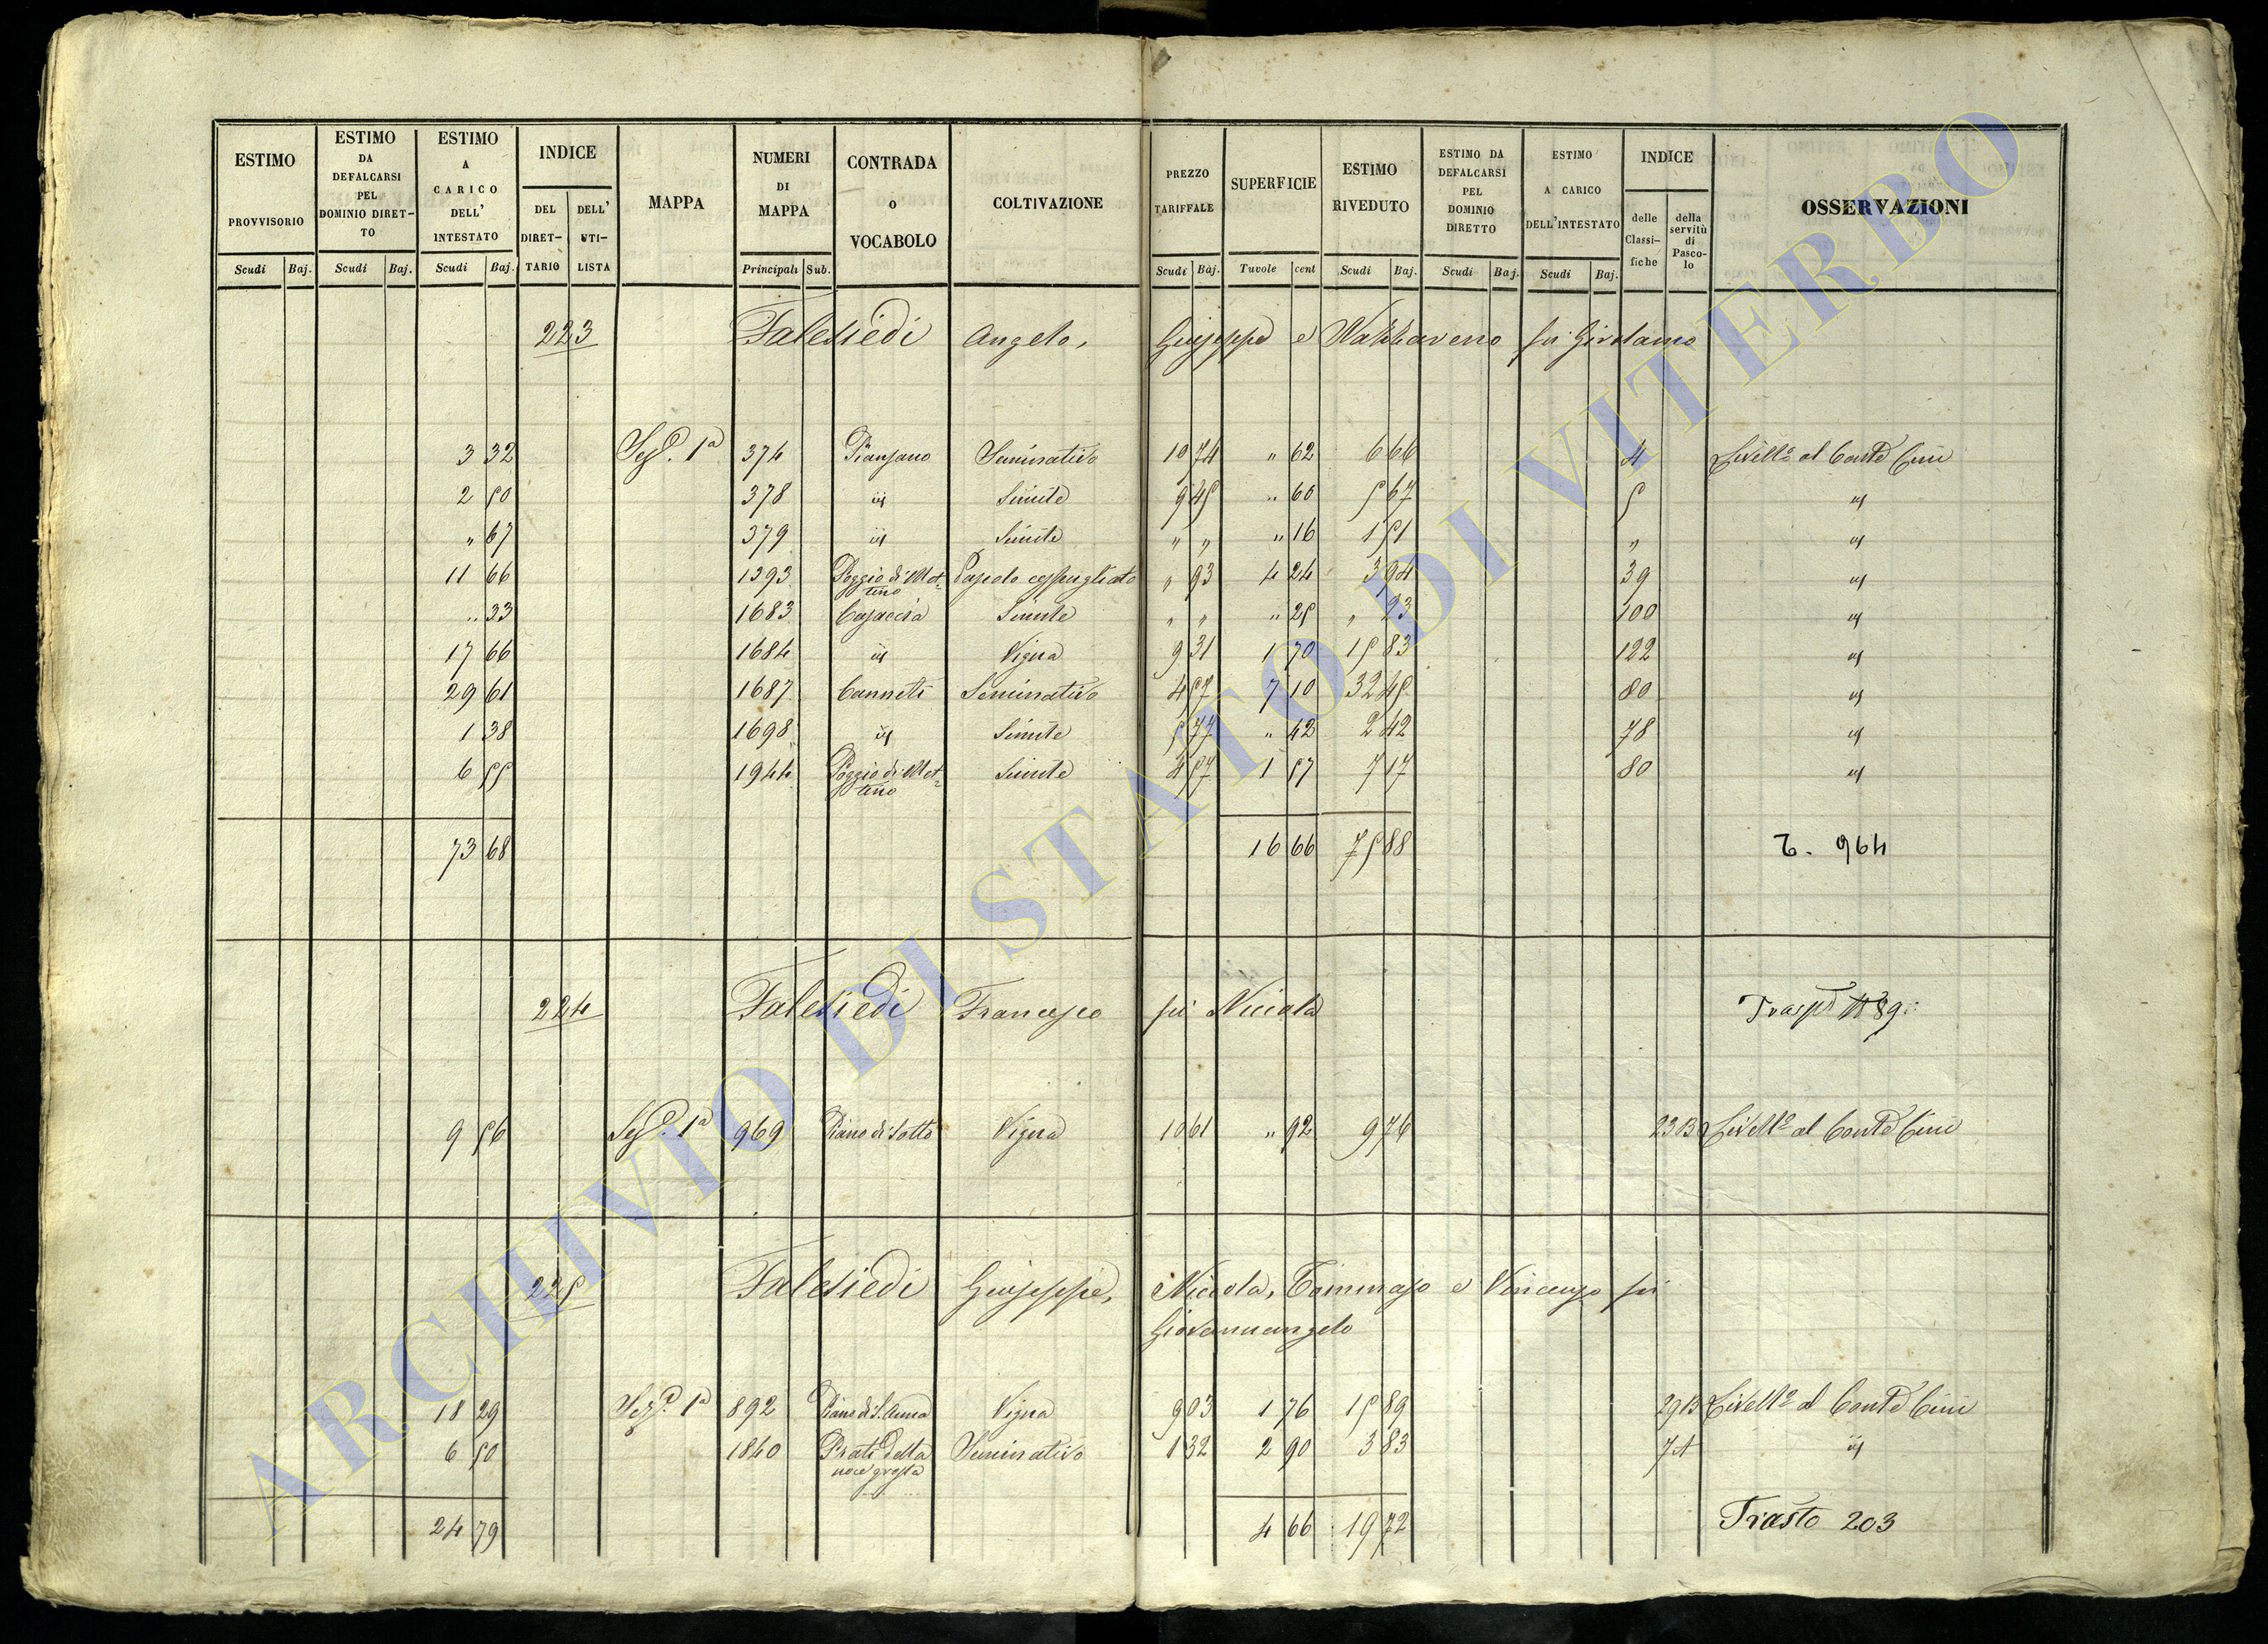 ESTIMO PROVVISORIO Scudi Baj.
ESTIMO DA DEFALCARSI PEL DOMINIO DIRET-TO Scudi Baj.
ESTIMO A CARICO DELL' INTESTATO Scudi Baj.
INDICE DEL DIRET-TARIO DELL' UTI-LISTA
MAPPA
NUMERI DI MAPPA Principali Sub.
CONTRADA o VOCABOLO
COLTIVAZIONE
PREZZO TARIFFALE Scudi Baj.
SUPERFICIE Tavole cent
ESTIMO RIVEDUTO Scudi Baj.
ESTIMO DA DEFALCARSI PEL DOMINIO DIRETTO Scudi Baj.
ESTIMO A CARICO DELL'INTESTATO Scudi Baj.
INDICE delle Classi-fiche della servitù di Pasco-lo
OSSERVAZIONI
223 Falesiedi Angelo, Giuseppe e fù Girolamo
3 32 Sez.e 1a 374 Pianzano Seminativo 10 74 " 62 6 66 4 Livell.o al Conte Cini
2 50 378 id Simile 9 45 " 60 5 67 5 id
" 67 379 id Simile " " " 16 1 51 " id
11 66 1393 Poggio di Mot=tino Pascolo cespugliato " 93 4 24 3 94 39 id
" 33 1683 Casaccia Simile " " " 25 " 23 100 id
17 66 1684 id Vigna 9 31 1 70 15 83 122 id
29 61 1687 Canneti Seminativo 4 57 7 10 32 45 80 id
1 38 1698 id Simile 5 77 " 42 2 42 78 id
6 55 1944 Poggio di Mot=tino Simile 4 57 1 57 7 17 80 id
73 68 16 66 75 88 T. 964
224 Falesiedi Francesco fù Niccola
9 56 Sez.e 1a 969 Piano di Sotto Vigna 10 61 " 92 9 76 23 B Livell.o al Conte Cini
225 Falesiedi Giuseppe, Niccola, Tommaso e Vincenzo fù
Giovannangelo
18 29 Sez.e 1a 892 Piano di S. Anna Vigna 9 03 1 76 15 89 29 B Livell.o al Conte Cini
6 50 1840 Prati della noce grossa Seminativo 1 32 2 90 3 83 7 A id
24 79 4 66 19 72 Trasto 203
ARCHIVIO DI STATO DI VITERBO